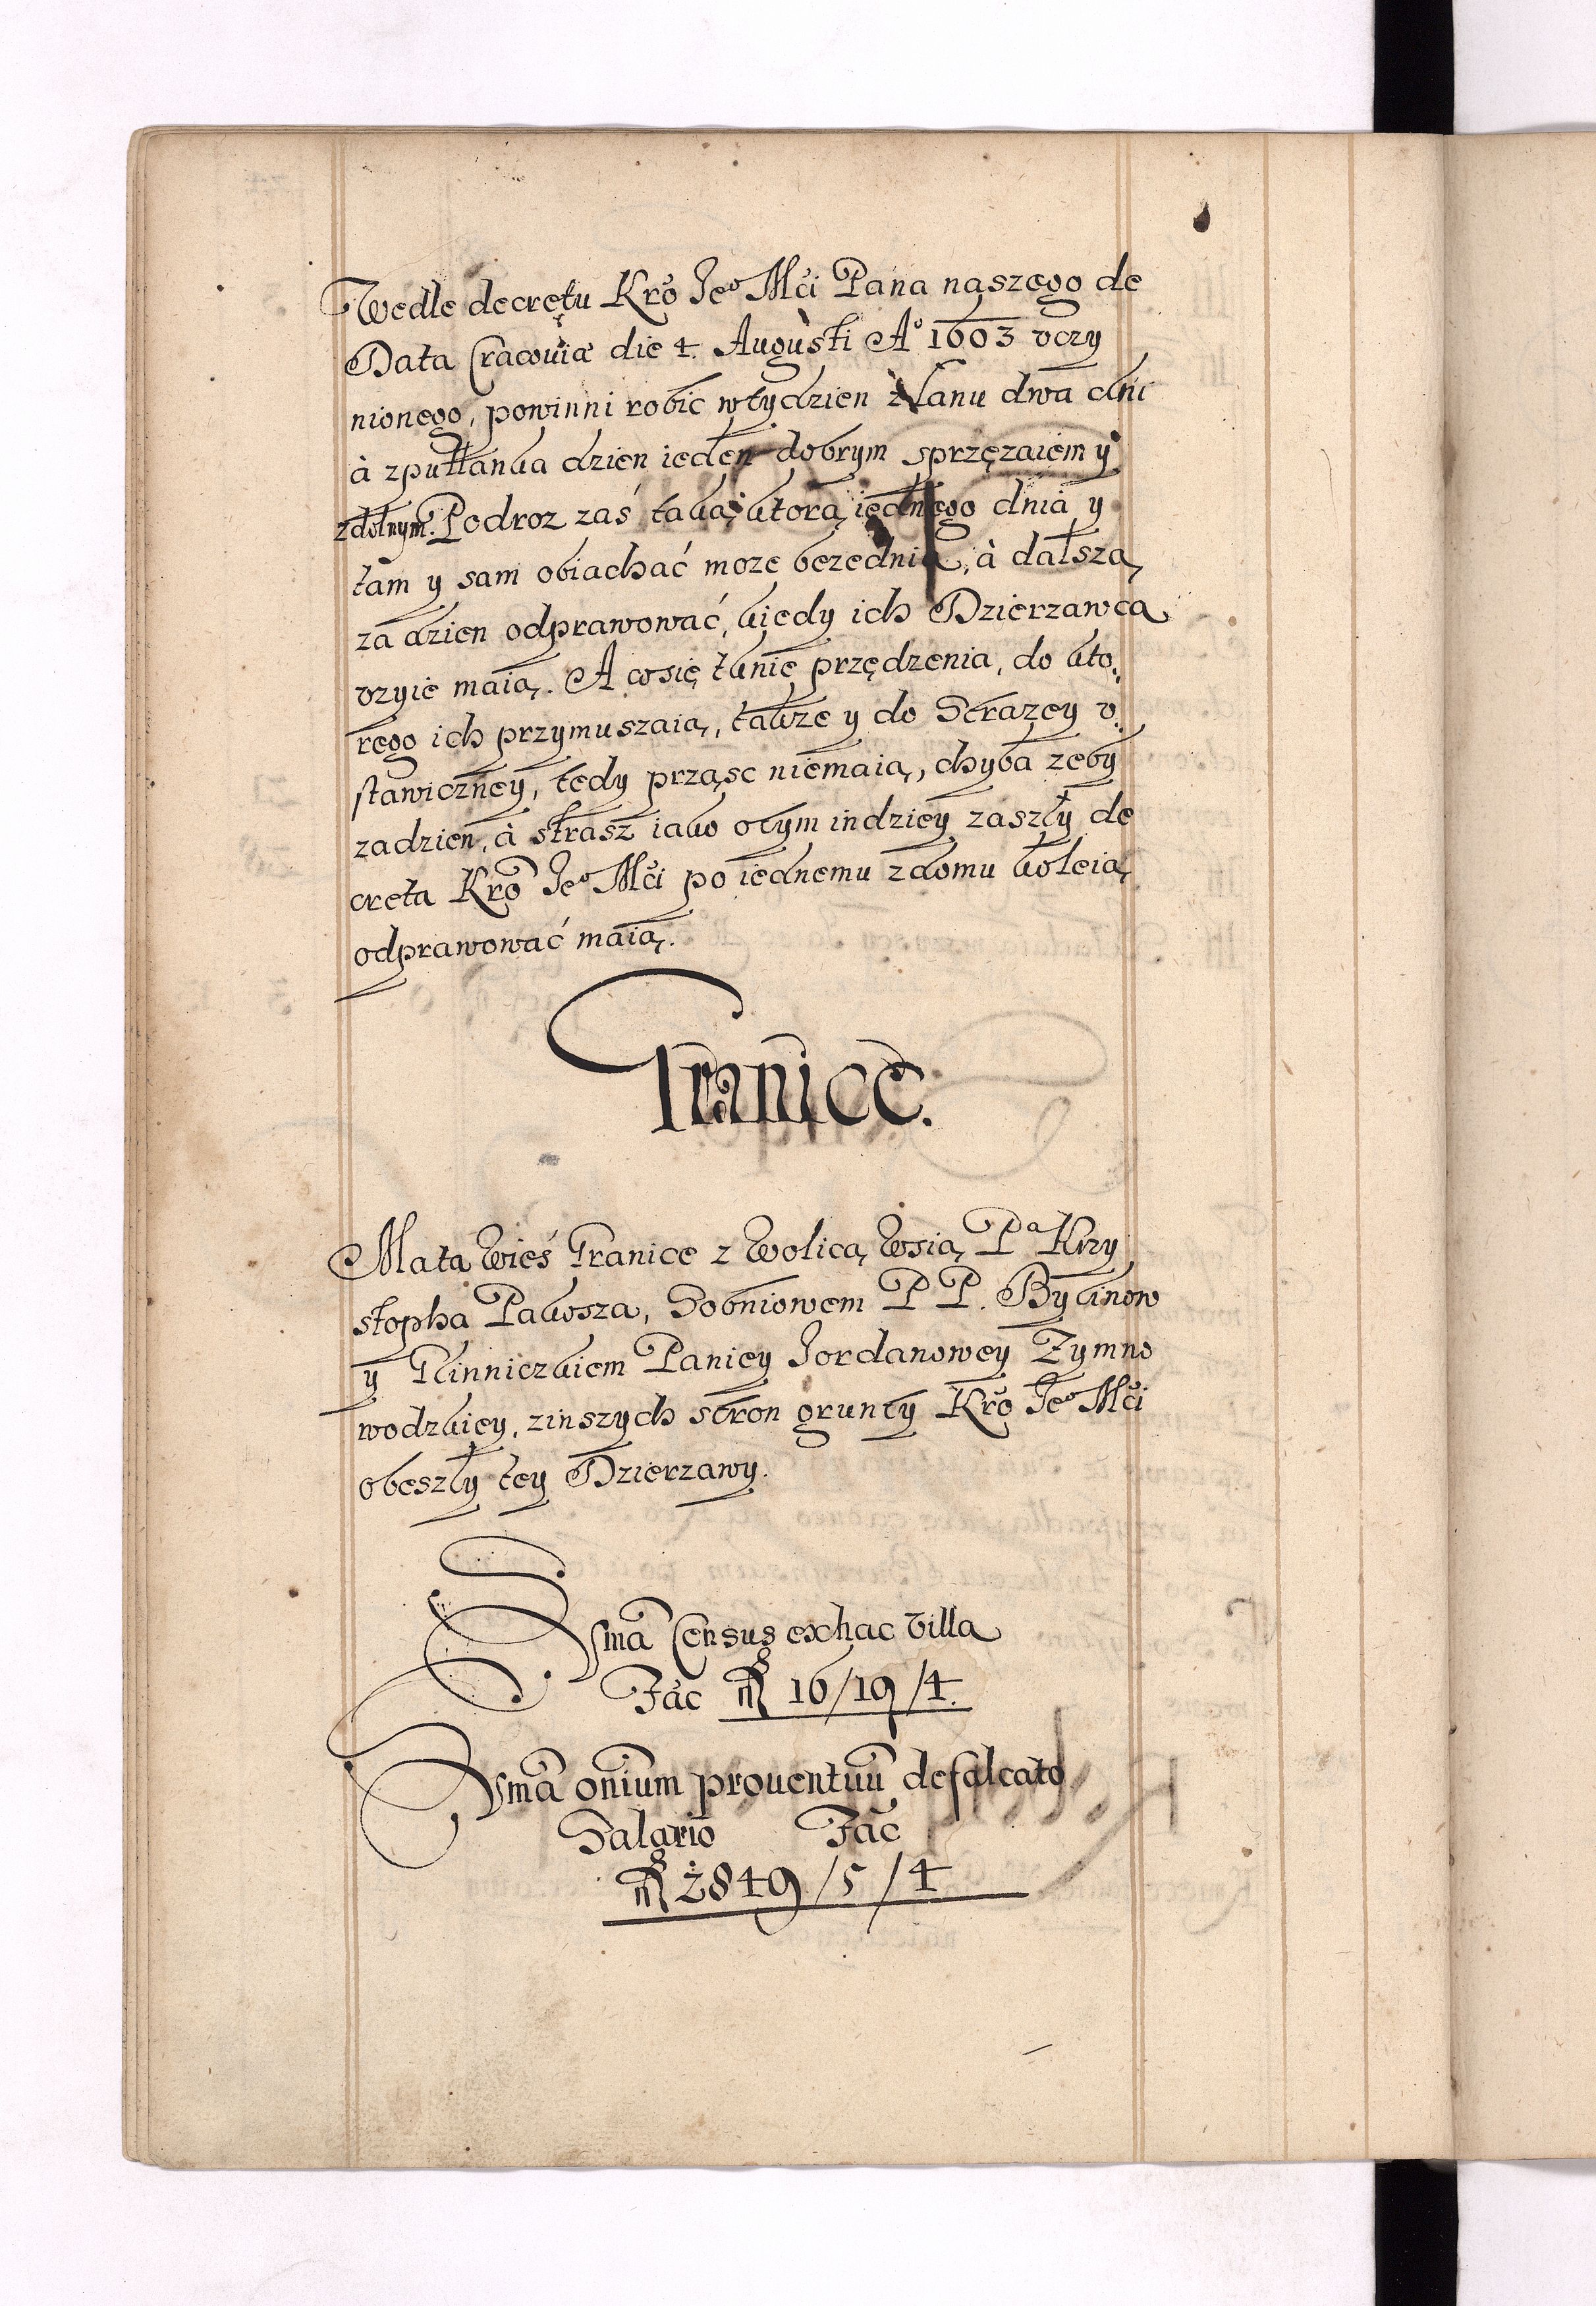 Wedle decretu Kro Jeo Mći Pana naszego de
Data Cracouiæ die 4. Augusti Ao 1603 vczy
nionego, powinni robić wtydzien złanu dwa dni
à zpułłanka dzien ieden dobrym sprzęzaiem y
zdolnym. Podroz zaś taką, ktorą iednego dnia y
tam y sam obiachać moze bezednia, à dalszą
za dzien odprawować, kiedy ich Dzierzawca
vzyie maią. A cosię tknie przędzenia, do kto
rego ich przymuszaią, także y do Strazey v
stawiczney, tedy prząsc niemaią, chyba zeby
zadzien, à strasz iako otym indziey zaszły de
creta Kro Jeo Mći po iednemu zdomu koleią
odprawować maią.
Granice.
Mata Wieś Granice z Wolicą Wsią Pa Krzy
stopha Pakosza, Sobniowem P P. Bykinow
y Glinniczkiem Paniey Jordanowey Zymno
wodzkiey, zinszych stron grunty Kro Jeo Mći
obeszły tey Dzierzawy.
Sma Census exhac villa
Fac fl 16/19/4.
Sma onium prouentuu defalcato
Salario Fac
fl 2849/5/4